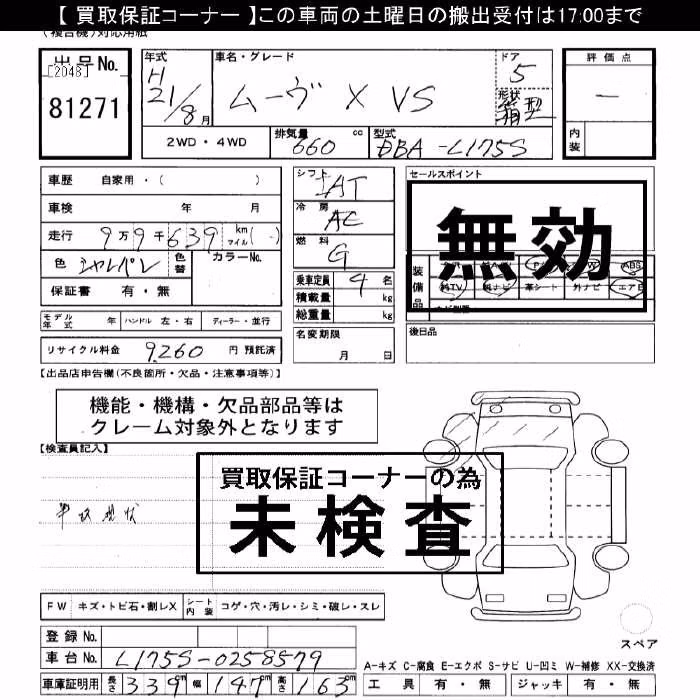 【 買取保証コーナー 】この車両の土曜日の搬出受付は17:00まで
(複合機)対応用紙
出品No.
[2048]
81271
年式
H
21/8月
車名・グレード
ムーヴ X VS
ドア
5
形状
箱型
評価点
—
内装
2WD・4WD
排気量
660 cc
型式
DBA-L175S
車歴 自家用・( )
車検 年 月
走行 9万9千639 km マイル( )
色 シャンパン 色替 カラーNo.
保証書 有・無
モデル年式 年 ハンドル 左・右 ディーラー・並行
リサイクル料金 9,260 円 預託済
シフト
IAT
冷房
AC
燃料
G
乗車定員 4 名
積載量 kg
総重量 kg
名変期限
月 日
セールスポイント
無効
装備品
ABS
純TV 純ナビ 革シート 外ナビ エアB
後日品
【出品店申告欄(不良箇所・欠品・注意事項等)】
機能・機構・欠品部品等は
クレーム対象外となります
【検査員記入】
買取保証コーナーの為
未検査
現状
FW キズ・トビ石・割レX シート内装 コゲ・穴・汚レ・シミ・破レ・スレ
登録No.
車台No. L175S-0258579
車庫証明用 長さ 339cm 幅 147cm 高さ 163cm
スペア
A-キズ C-腐食 E-エクボ S-サビ U-凹ミ W-補修 XX-交換済
工具 有・無 ジャッキ 有・無